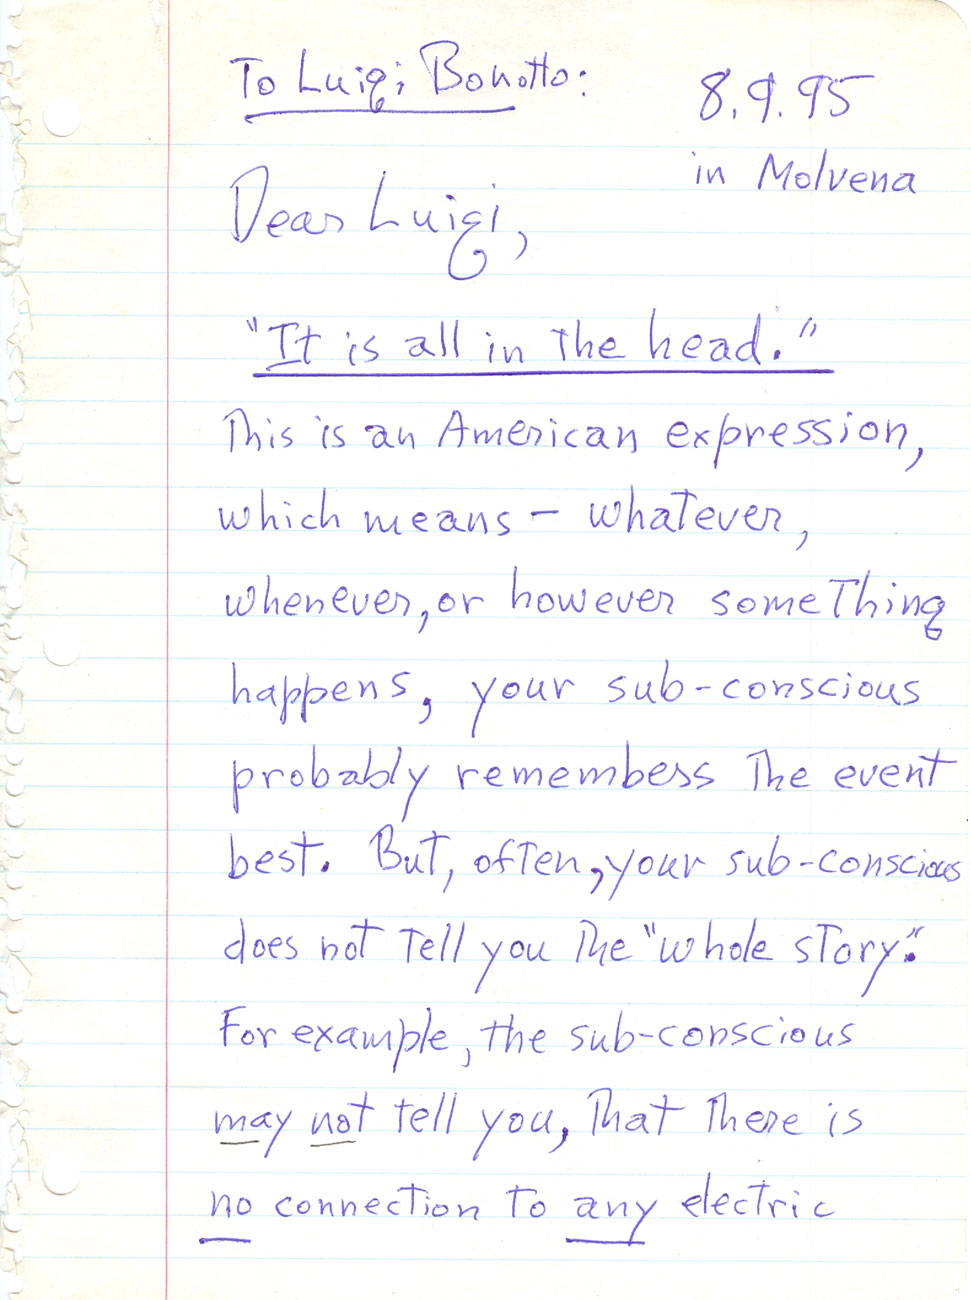 To Luigi Bonotto:
8.9.95
in Molvena
Dear Luigi,
"It is all in the head."
This is an American expression,
which means – whatever,
whenever, or however something
happens, your sub-conscious
probably remembers the event
best. But, often, your sub-conscious
does not tell you the "whole story".
For example, the sub-conscious
may not tell you, that there is
no connection to any electric